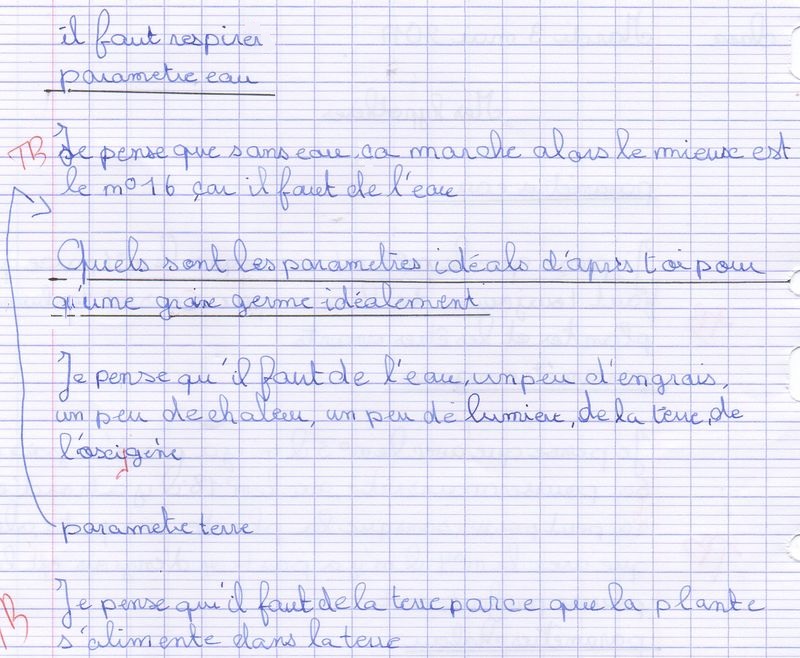 il faut respirer
parametre eau
TB Je pense que sans eau ca marche alors le mieux est
le n°16 çar il faut de l'eau
Quels sont les parametres idéals d'après toi pour
qu'une graine germe idéalement
Je pense qu'il faut de l'eau, un peu d'engrais,
un peu de chaleur, un peu de lumiere, de la terre, de
l'oxigéne
parametre terre
TB Je pense qu'il faut de la terre parce que la plante
s'alimente dans la terre